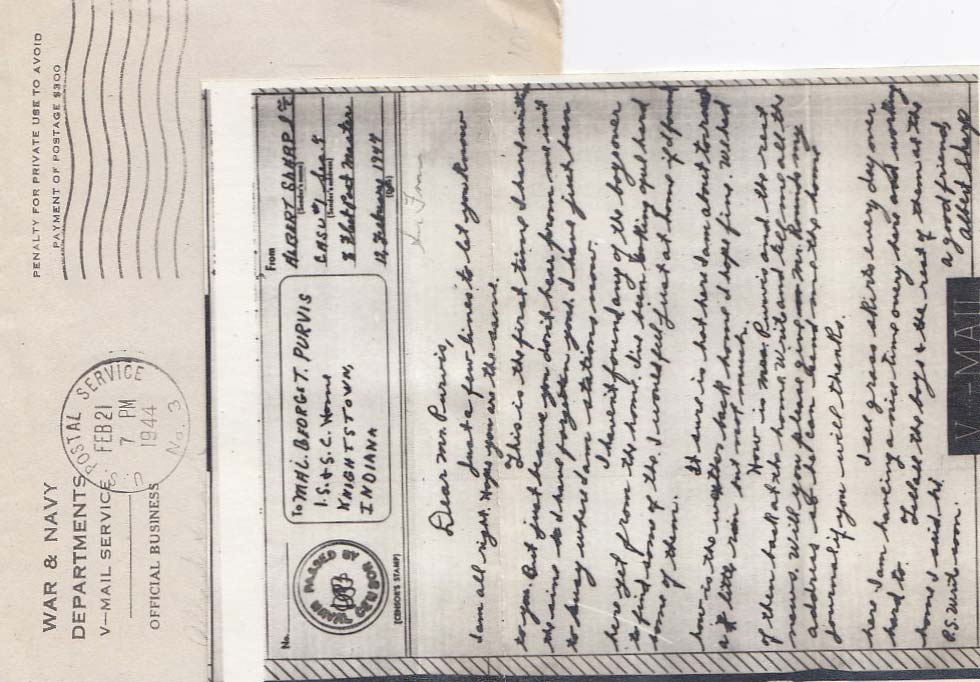 WAR & NAVY
DEPARTMENTS
V—MAIL SERVICE
OFFICIAL BUSINESS
POSTAL SERVICE
FEB 21
7 PM
1944
No. 3
PENALTY FOR PRIVATE USE TO AVOID
PAYMENT OF POSTAGE $300
No.
PASSED BY
NAVAL CENSOR
(CENSOR'S STAMP)
To MAL. GEORGE T. PURVIS
I.S.&S.C. Home
KNIGHTSTOWN,
INDIANA
From
ALBERT SHARP
(Sender's name)
CASU
(Sender's address)
% Fleet Post Master
12 February 1944
(Date)
Dear Mr. Purvis,
Just a few lines to let you know
I am all right. Hope you are the same.
This is the first time I have written
to you. But just because you don't hear from me isn't
the same as I have forgotten you. I have just been
to busy where I am stationed now.
I haven't found any of the boys over
here yet from the home. I've been looking quite hard
to find some of the. I would feel just at home if I found
some of them.
It sure is hot here I am about to roast
how is the weather back home I hope fine. We had
a little rain but not much.
How is Mrs. Purvis and the rest
of them back at the home. Write and tell me all the
news. Will you please give Mr. Rounds my
address so he can send me the home
journal if you will thanks.
I see grass skirts every day over
here. I am having a nice time over here and working
hard to. Tell all the boys & the rest of them at the
home I said hi.
a good friend,
Albert Sharp
P.S. Write soon.
V-MAIL